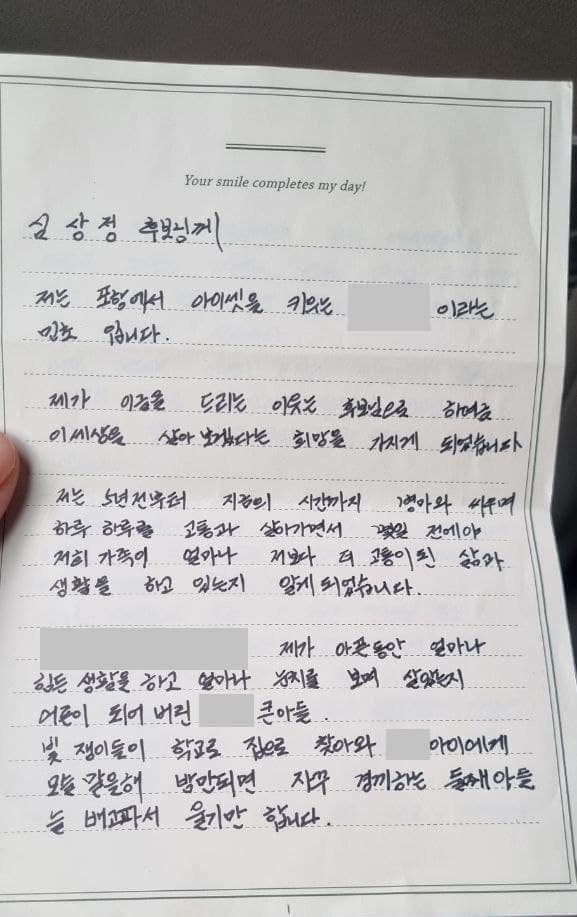 Your smile completes my day!
심 상 정 후보님께
저는 포항에서 아이셋을 키우는 이라는
민초 입니다.
제가 이글을 드리는 이유는 후보님으로 하여금
이세상을 살아 보겠다는 희망을 가지게 되었습니다
저는 5년전부터 지금의 시간까지 병마와 싸우며
하루 하루를 고통과 살아가면서 몇일 전에야
저희 가족이 얼마나 저보다 더 고통이 된 삶과
생활을 하고 있는지 알게 되었습니다.
제가 아픈동안 얼마나
힘든 생활을 하고 얼마나 눈치를 보며 살았는지
어른이 되어 버린 큰아들.
빚 쟁이들이 학교로 집으로 찾아와 아이에게
밤만되면 자꾸 경끼하는 둘째아들
늘 배고파서 울기만 합니다.
1